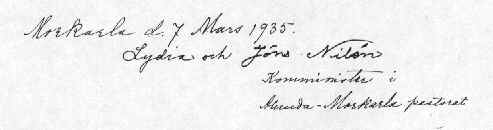 Morkarla d. 7 Mars 1935.
Lydia och Jöns Nilén
Komminister i
Alunda-Morkarla pastorat